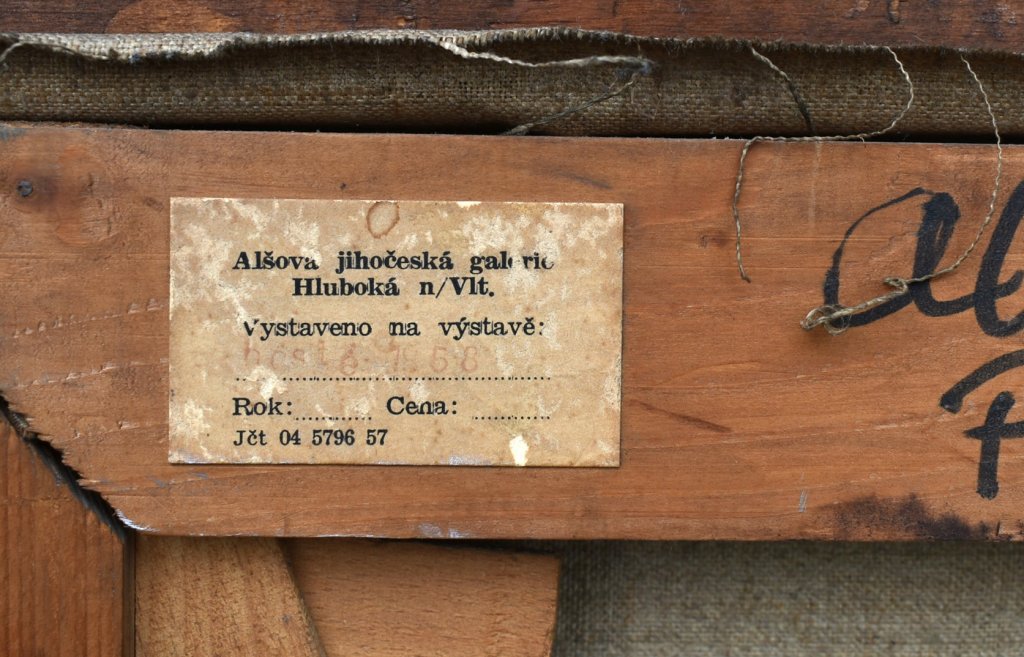 Alšova jihočeská galerie
Hluboká n/Vlt.
Vystaveno na výstavě:
1958
Rok: Cena:
Jčt 04 5796 57